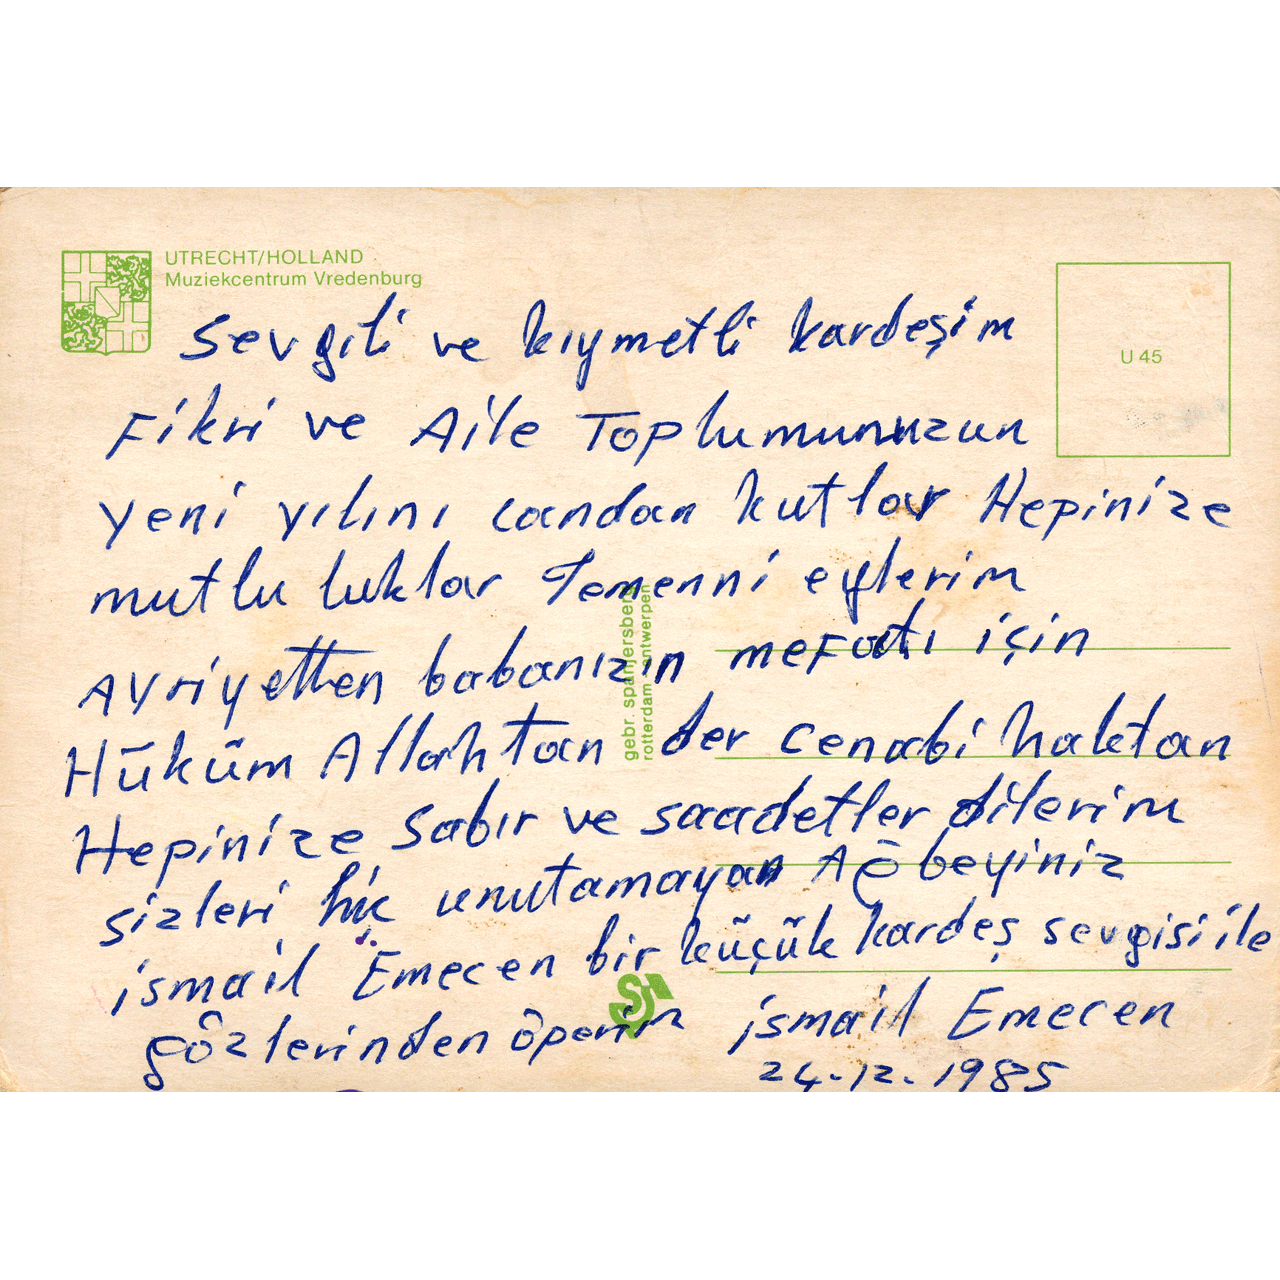 UTRECHT/HOLLAND
Muziekcentrum Vredenburg
U 45
Sevgili ve kıymetli kardeşim
Fikri ve Aile Toplumunuzun
yeni yılını candan kutlar Hepinize
mutluluklar Temenni eylerim
Ayriyetten babanızın mefatı için
Hüküm Allahtan der cenabi haktan
Hepinize Sabır ve saadetler dilerim
sizleri hiç unutamayan Ağbeyiniz
ismail Emecen bir küçük kardeş sevgisi ile
gözlerinden öperim ismail Emecen
24.12.1985
gebr. spanjersberg
rotterdam antwerpen